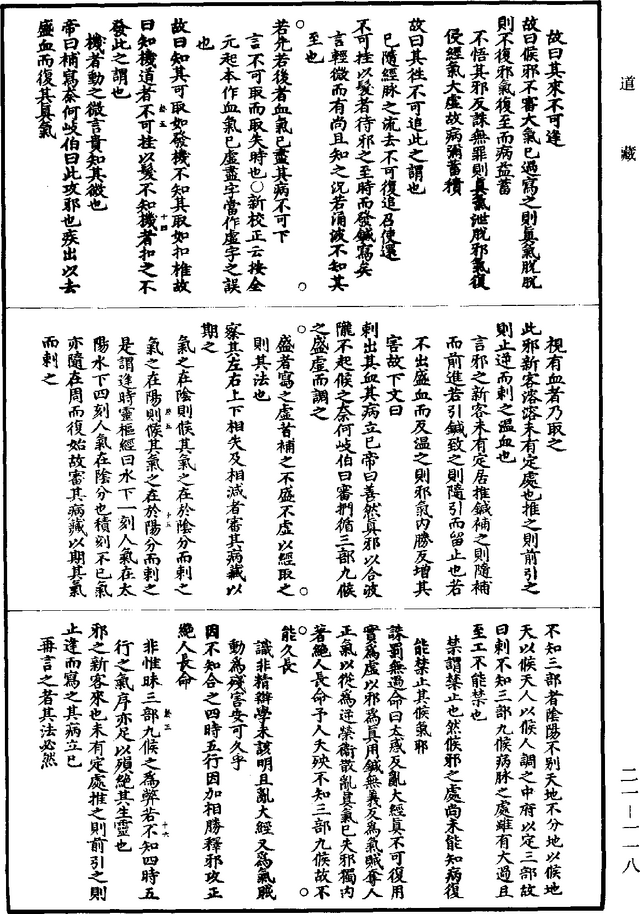 道藏
故曰其來不可逢
故曰候邪不審大氣已過寫之則真氣脫脫
則不復邪氣復至而病益蓄
不悟其邪反誅無罪則真氣泄脫邪氣復
侵經氣大虛故病彌蓄積
故曰其往不可追此之謂也
已隨經脉之流去不可復追召使還
不可挂以髮者待邪之至時而發鍼寫矣
言輕微而有尚且知之況若涌波不知其
至也
若先若後者血氣已盡其病不可下
言不可取而取失時也○新校正云按全
元起本作血氣已虛盡字當作虛字之誤
也
故曰知其可取如發機不知其取如扣椎故
曰知機道者不可挂以髮不知機者扣之不
發此之謂也
機者動之微言貴知其微也
帝曰補寫奈何岐伯曰此攻邪也疾出以去
盛血而復其真氣
視有血者乃取之
此邪新客溶溶未有定處也推之則前引之
則止逆而刺之溫血也
言邪之新客未有定居推鍼補之則隨補
而前進若引鍼致之則隨引而留止也若
不出盛血而反溫之則邪氣內勝反增其
害故下文曰
刺出其血其病立已帝曰善然真邪以合波
隴不起候之奈何岐伯曰審捫循三部九候
之盛虛而調之
盛者寫之虛者補之不盛不虛以經取之
則其法也
察其左右上下相失及相減者審其病藏以
期之
氣之在陰則候其氣之在於陰分而刺之
氣之在陽則候其氣之在於陽分而刺之
是謂逢時靈樞經曰水下一刻人氣在太
陽水下四刻人氣在陰分也積刻不已氣
亦隨在周而復始故審其病藏以期其氣
而刺之
不知三部者陰陽不別天地不分地以候地
天以候天人以候人調之中府以定三部故
曰刺不知三部九候病脉之處雖有大過且
至工不能禁也
禁謂禁止也然候邪之處尚未能知病復
能禁止其候氣邪
誅罰無過命曰大惑反亂大經真不可復用
實為虛以邪為真用鍼無義反為氣賊奪人
正氣以從為逆榮衛散亂真氣已失邪獨內
著絕人長命予人夭殃不知三部九候故不
能久長
識非精辯學未該明且亂大經又為氣賊
動為殘害安可久乎
因不知合之四時五行因加相勝釋邪攻正
絕人長命
非惟昧三部九候之為弊若不知四時五
行之氣序亦足以殞絕其生靈也
邪之新客來也未有定處推之則前引之則
止逢而寫之其病立已
再言之者其法必然
二一—一一八